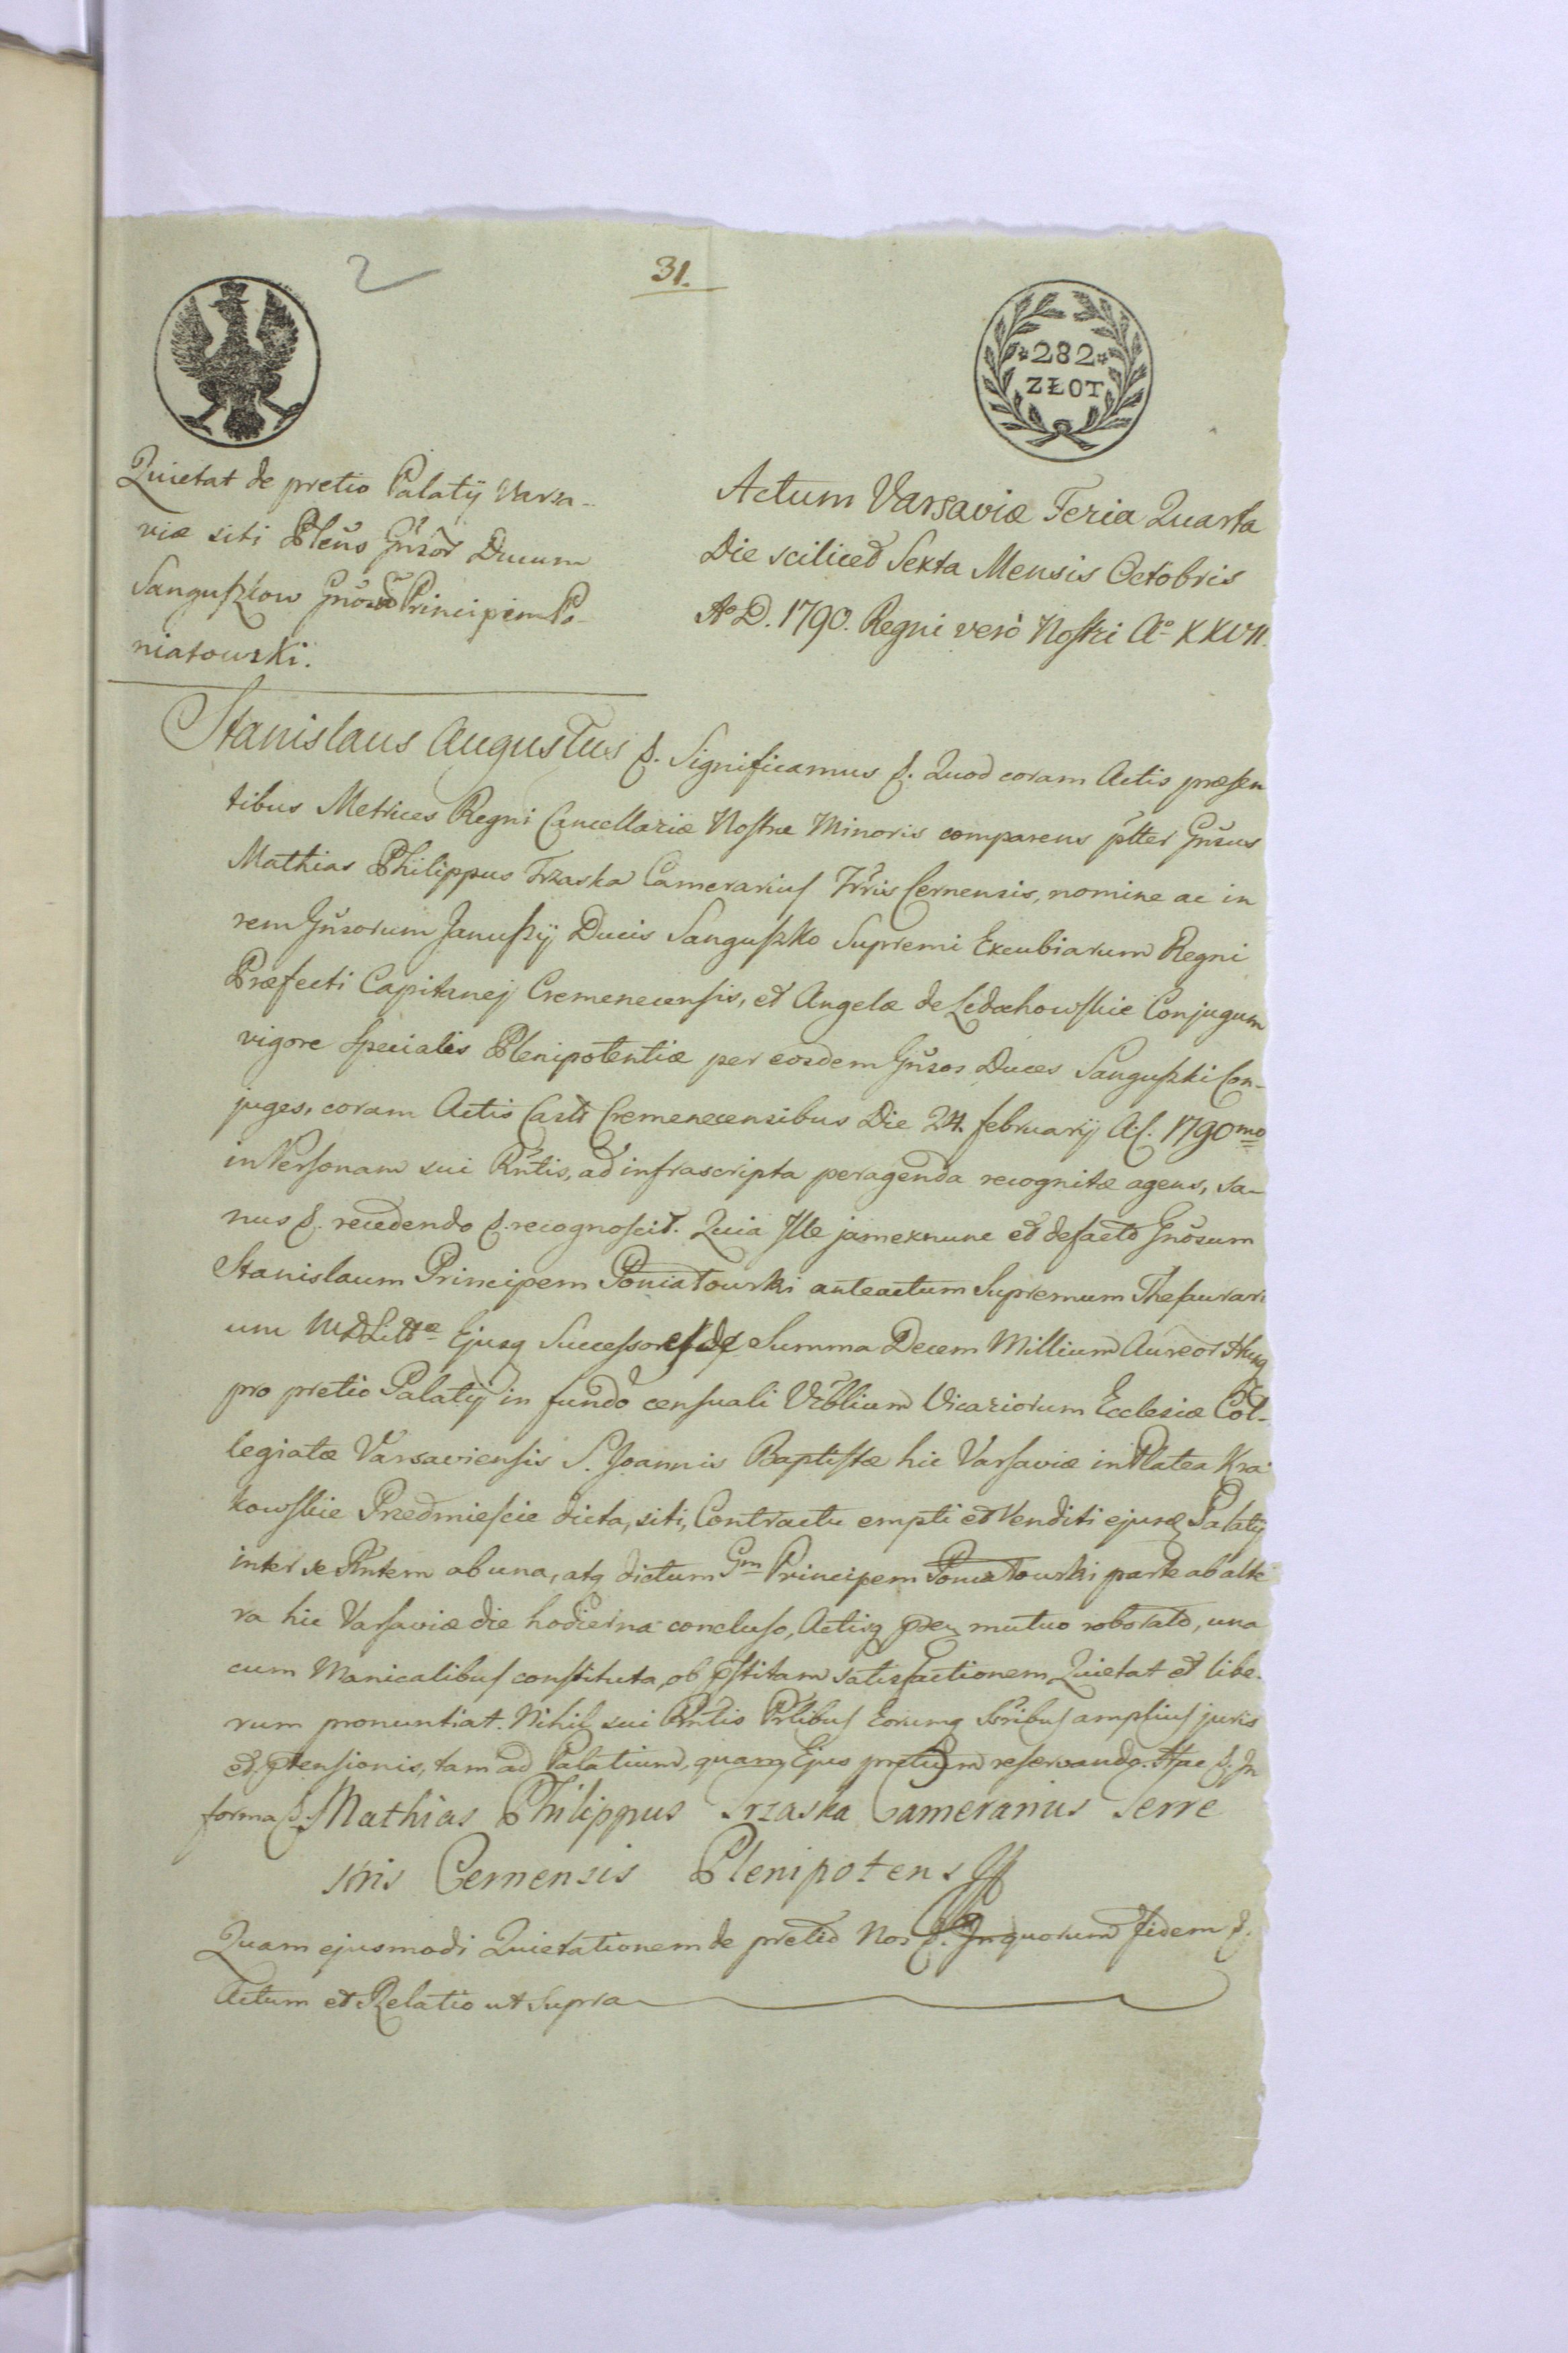 2
31.
282
ZŁOT
Quietat de pretio Palatÿ Varsa-
viæ siti Plens Gnsor Ducum
Sanguszkow Gnosum Principem Po-
niatowski.
Actum Varsaviæ Feria Quarta
Die scilicet Sexta Mensis Octobris
Ao D. 1790. Regni verò Nostri Ao XXVII.
Stanislaus Augustus &. Significamus &. Quod coram Actis præsen
tibus Metrices Regni Cancellariæ Nostræ Minoris comparens pltter Gnsus
Mathias Philippus Trzaska Camerarius Trris Cernensis, nomine ac in
rem Gnsorum Januszÿ Ducis Sanguszko Supremi Excubiarum Regni
Præfecti Capitanej Cremenecensis, et Angelæ de Ledochowskie Conjugum
vigore specialis Plenipotentiæ per eosdem Gnsos Duces Sanguszki Con-
juges, coram Actis Castr Cremenecensibus Die 24. februarÿ A. C. 1790mo
in Personam sui Rntis, ad infrascripta peragenda recognitæ agens, sa-
nus &. recedendo &. recognoscit. Quia Ille jam ex nunc et de facto Gnosum
Stanislaum Principem Poniatowski anteactum Supremum Thesaurari
um M D Littæ Ejusq Successores de Summa Decem Millium Aureor Hung
pro pretio Palatÿ in fundo censuali Vrblium Vicariorum Ecclesiæ Col-
legiatæ Varsaviensis S. Joannis Baptistæ hic Varsaviæ in Platea Kra
kowskie Przedmiescie dicta, siti, Contractu empti et Venditi ejusd Palatÿ
inter se Rntem ab una, atq dictum Gm Principem Poniatowski parte ab alte
ra hic Varsaviæ die hodierna concluso, Actisq pser mutuo roborato, una
cum Manicalibus constituta, ob pstitam satisfactionem Quietat et libe-
rum pronuntiat. Nihil sui Rntis Prlibus Eorumq Ssribus amplius juris
et ptensionis, tam ad Palatium, quam Ejus pretium reservando. Hac &. In
forma &. Mathias Philippus Trzaska Camerarius Terre
stris Cernensis Plenipotens
Quam ejusmodi Quietationem de pretio Nos &. In quorum fidem &.
Actum et Relatio ut Supra